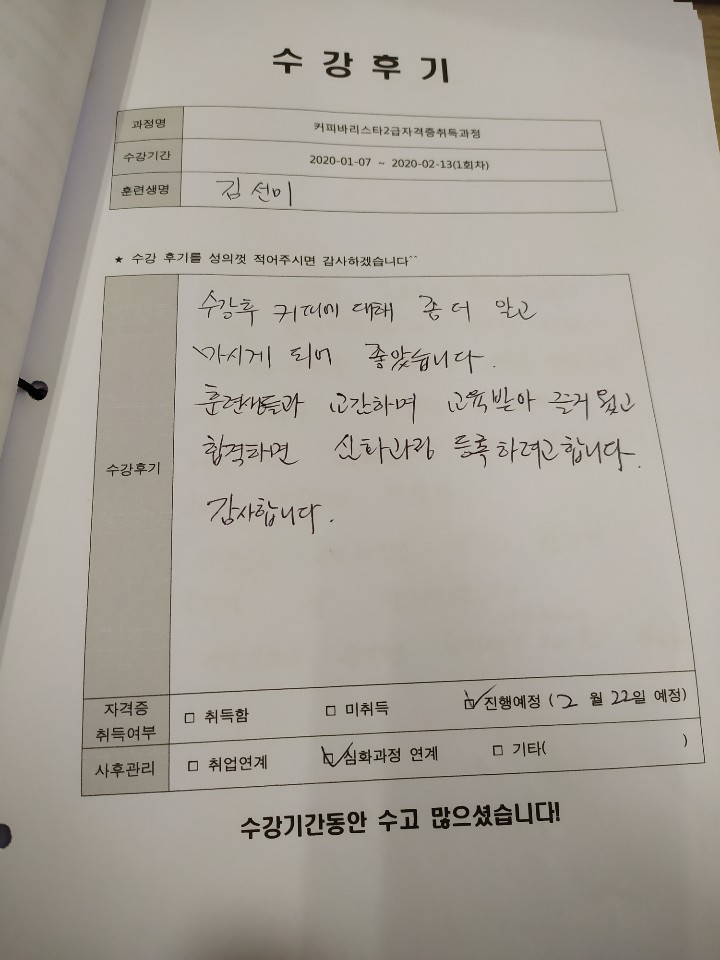 수강후기
과정명 커피바리스타2급자격증취득과정
수강기간 2020-01-07 ~ 2020-02-13(1회차)
훈련생명 김선미
★ 수강 후기를 성의껏 적어주시면 감사하겠습니다^^
수강후기
수강후 커피에 대해 좀 더 알고
마시게 되어 좋았습니다.
훈련생들과 교감하며 교육받아 즐거웠고
합격하면 심화과정 등록하려고합니다.
감사합니다.
자격증 취득여부 □ 취득함 □ 미취득 ☑ 진행예정 (2월 22일 예정)
사후관리 □ 취업연계 ☑ 심화과정 연계 □ 기타( )
수강기간동안 수고 많으셨습니다!